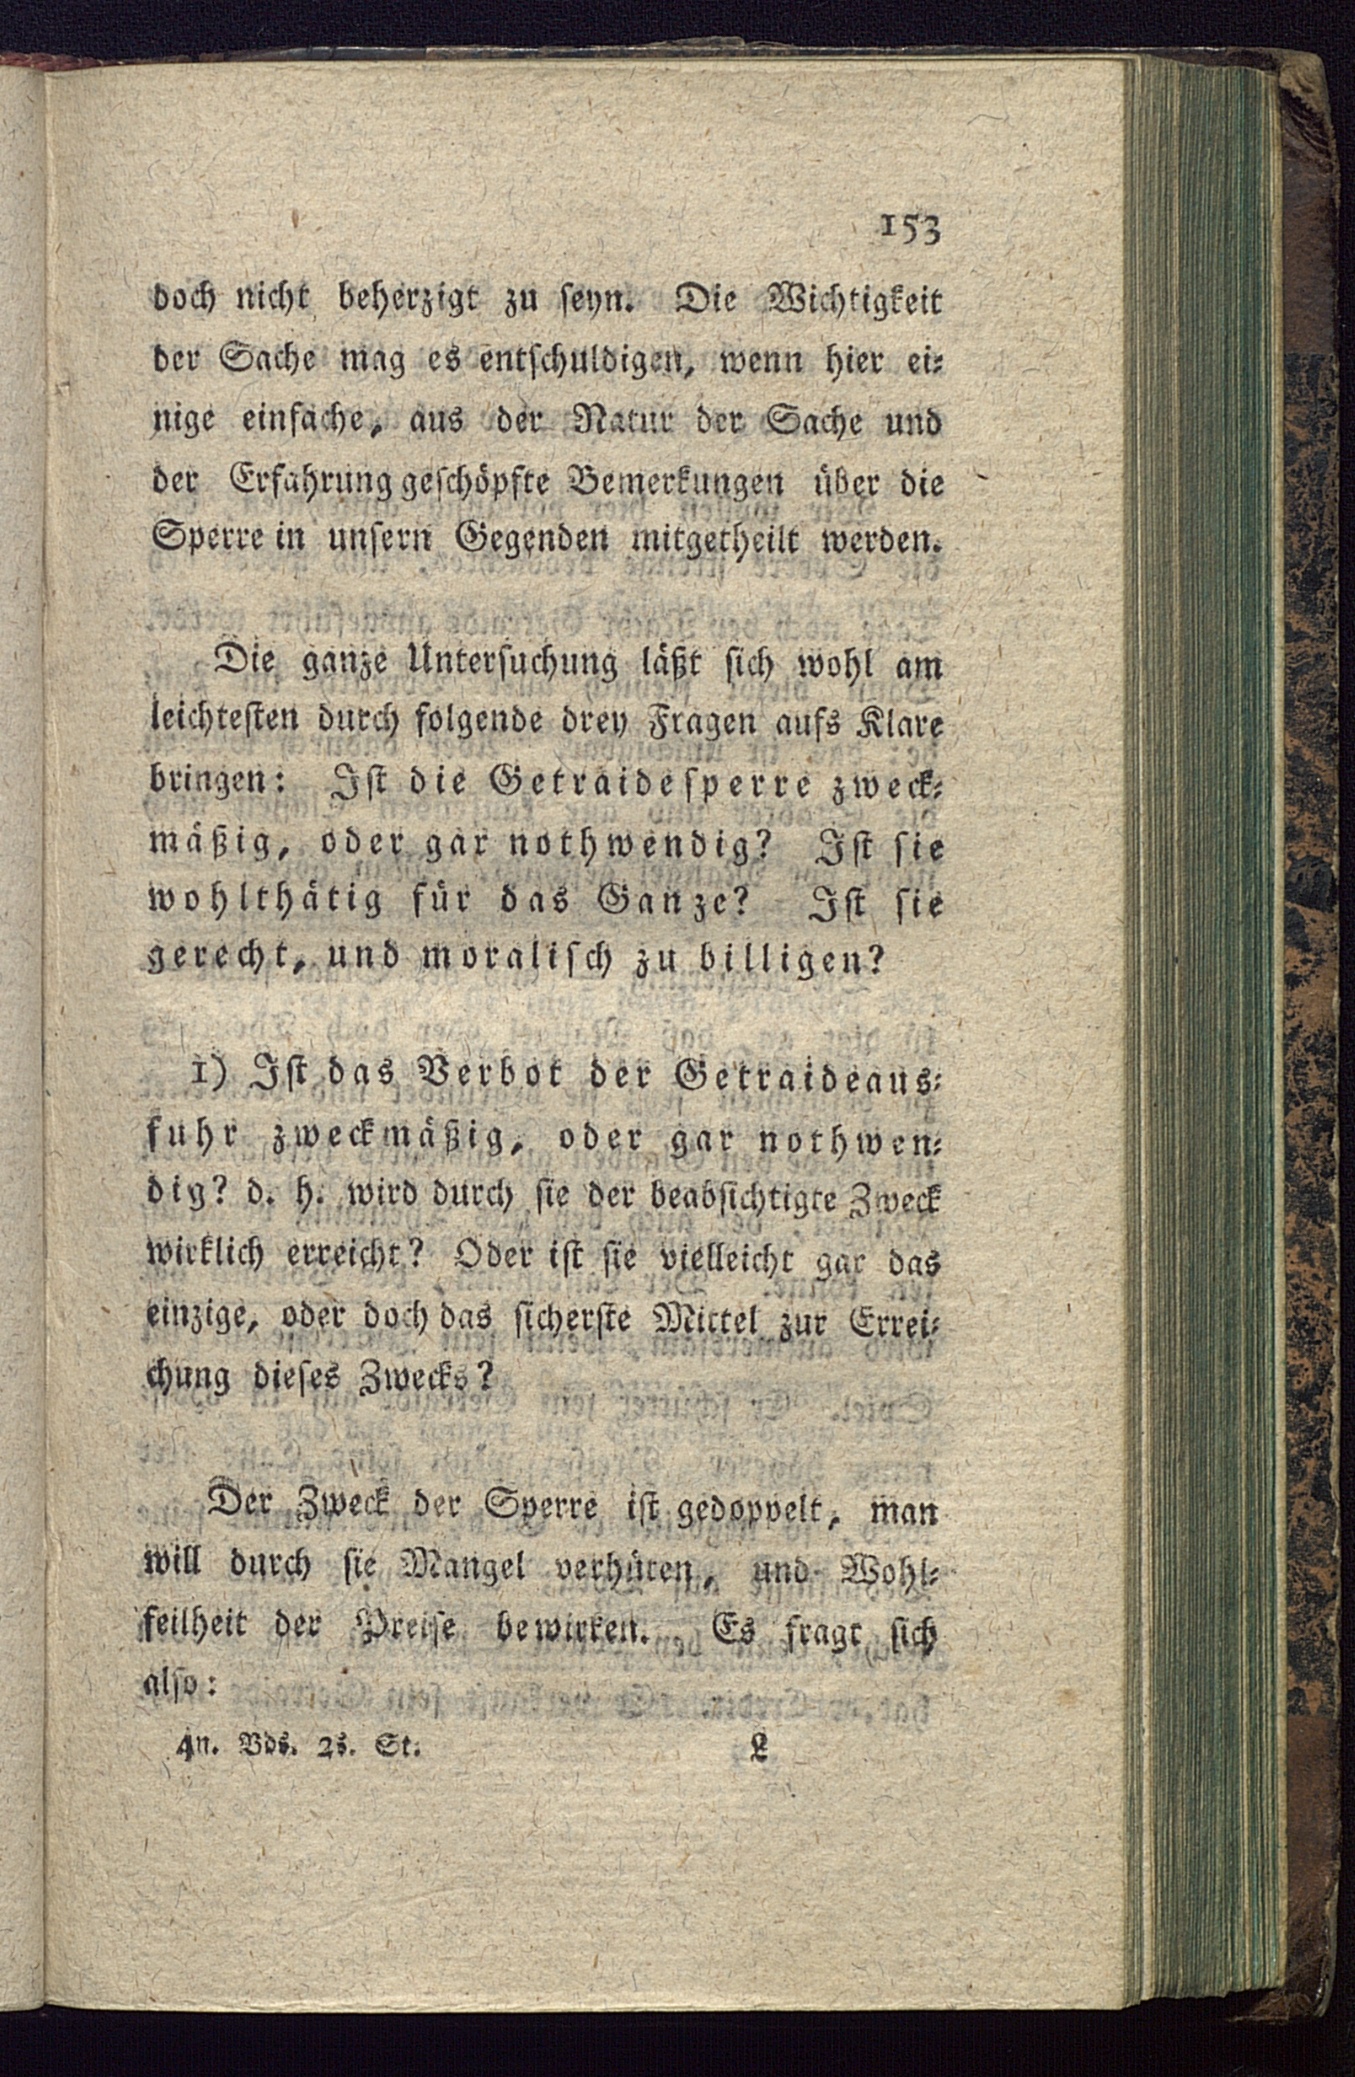 153
doch nicht beherzigt zu seyn. Die Wichtigkeit
der Sache mag es entschuldigen, wenn hier ei-
nige einfache, aus der Natur der Sache und
der Erfahrung geschöpfte Bemerkungen über die
Sperre in unsern Gegenden mitgetheilt werden.
Die ganze Untersuchung läßt sich wohl am
leichtesten durch folgende drey Fragen aufs Klare
bringen: Ist die Getraidesperre zweck-
mäßig, oder gar nothwendig? Ist sie
wohlthätig für das Ganze? Ist sie
gerecht, und moralisch zu billigen?
1) Ist das Verbot der Getraideaus-
fuhr zweckmäßig, oder gar nothwen-
dig? d. h. wird durch sie der beabsichtigte Zweck
wirklich erreicht? Oder ist sie vielleicht gar das
einzige, oder doch das sicherste Mittel zur Errei-
chung dieses Zwecks?
Der Zweck der Sperre ist gedoppelt, man
will durch sie Mangel verhüten, und Wohl-
feilheit der Preise bewirken. Es fragt sich
also:
4n. Bds. 2s. St. L